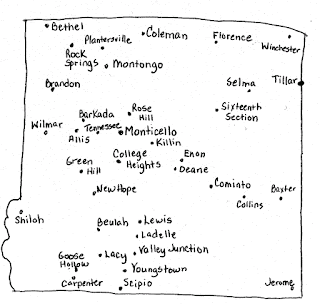 Bethel
Plantersville
Coleman
Florence
Winchester
Rock
Springs
Montongo
Brandon
Selma
Tillar
Barkada
Rose
Hill
Sixteenth
Section
Wilmar
Tennessee
Allis
Monticello
Killin
Green
Hill
College
Heights
Enon
Deane
New Hope
Comiato
Collins
Baxter
Shiloh
Beulah
Lewis
Ladelle
Goose
Hollow
Lacy
Valley Junction
Youngstown
Carpenter
Scipio
Jerome